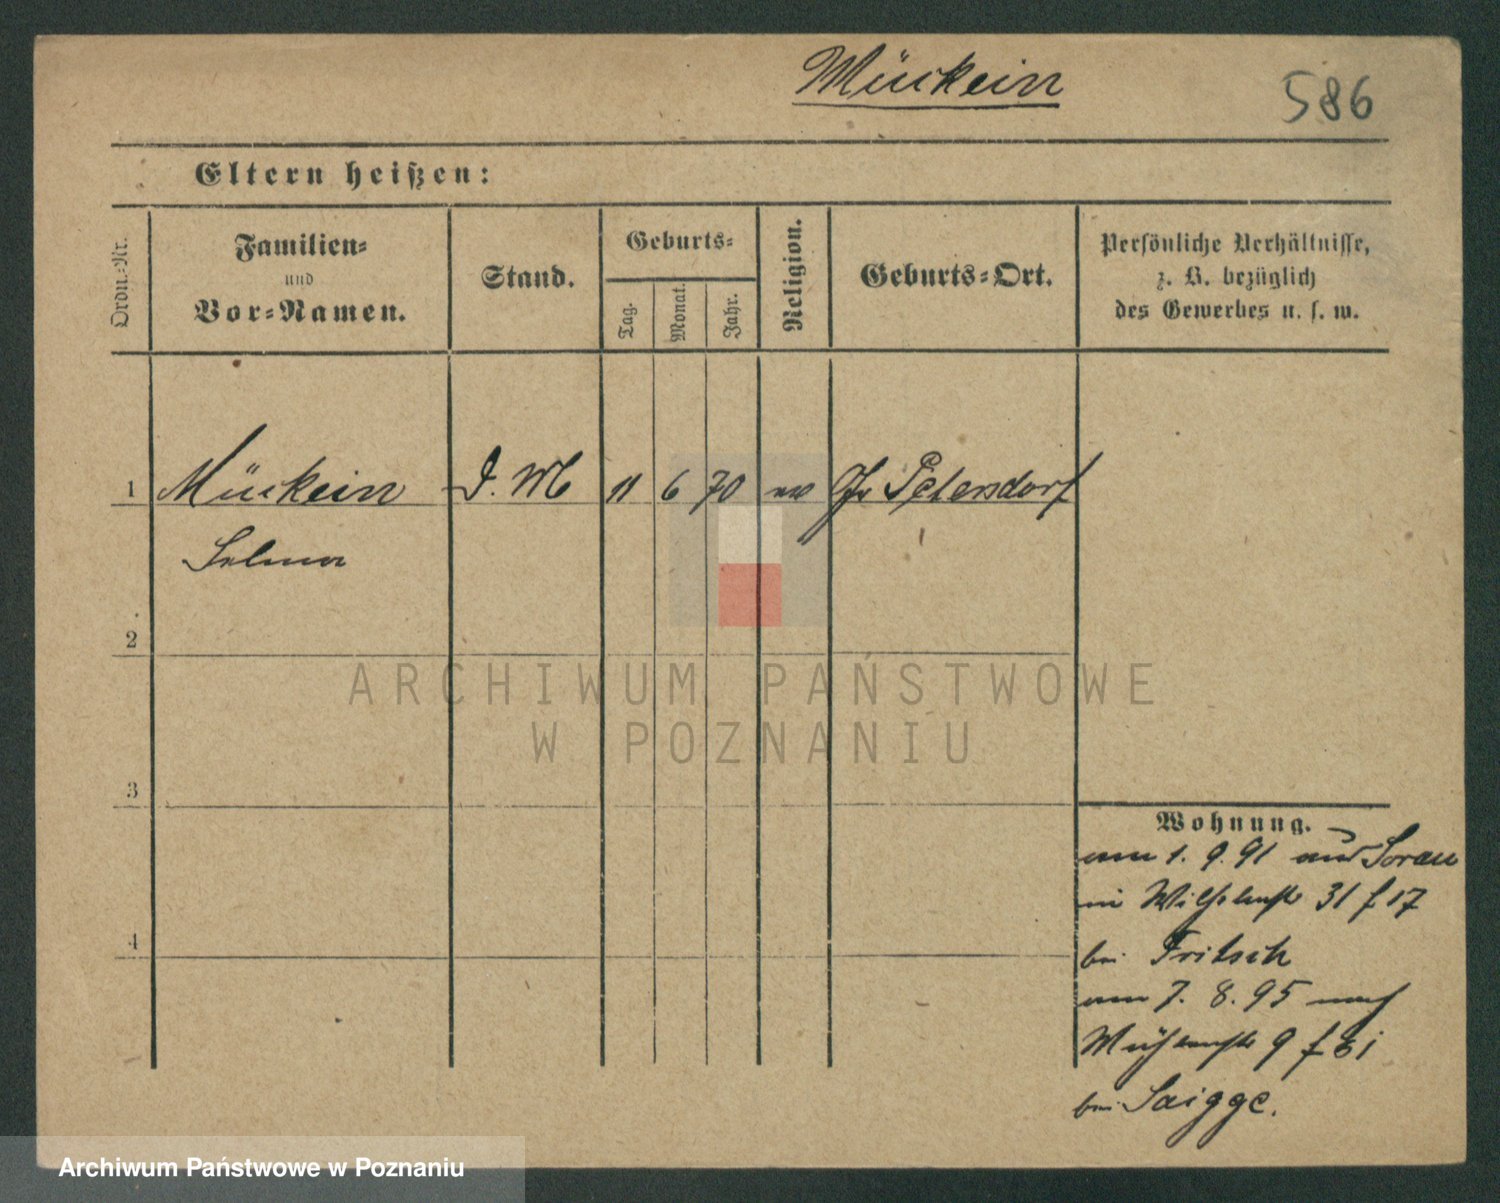 Mückein
586
Eltern heißen:
Ordn.-Nr.
Familien-
und
Vor-Namen.
Stand.
Geburts-
Tag.
Monat.
Jahr.
Religion.
Geburts-Ort.
Persönliche Verhältnisse,
z. B. bezüglich
des Gewerbes u. s. w.
1 Mückein D. M 11 6 70 ev Gr Petersdorf
Selma
2
3
4
Wohnung.
am 1. 9. 91 aus Sorau
in Wilhelmstr 31 f 17
bei Fritsch
am 7. 8. 95 nach
Mühlenstr 9 f
bei Saigge.
ARCHIWUM PAŃSTWOWE
W POZNANIU
Archiwum Państwowe w Poznaniu